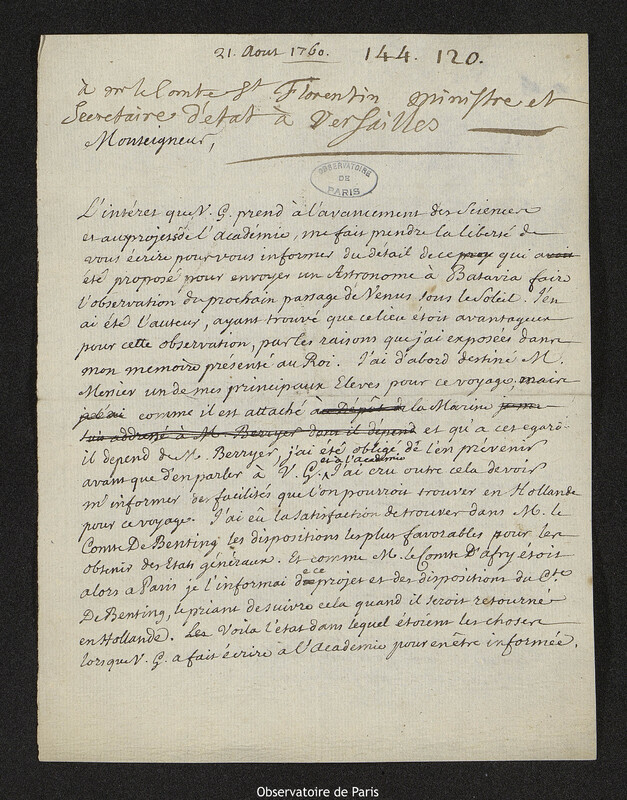 21. Aout 1760. 144. 120.
à mr le Comte St Florentin ministre et
Secretaire d'etat à Versailles
Monseigneur,
OBSERVATOIRE
DE
PARIS
L'intéret que V. G. prend à l'avancement des Sciences
et au projets de l'académie, me fait prendre la liberté de
vous écrire pour vous informer du détail de ce proj qui avoit
été proposé pour envoyer un Astronome à Batavia faire
l'observation du prochain passage de Venus sous le Soleil. J'en
ai été l'auteur, ayant trouvé que ce lieu étoit avantageux
pour cette observation, par les raisons que j'ai exposées dans
mon memoire présenté au Roi. J'ai d'abord destiné M.
Messier un de mes principaux Eleves pour ce voyage, mais
comme il est attaché à Dépôt de la Marine
suis addressé à M. Berryer dont il dépend et qu'a cet egard
il depend de M. Berryer, j'ai été obligé de l'en prévenir
avant que d'en parler à V. G. et à l'académie J'ai cru outre cela devoir
m'informer des facilités que l'on pourroit trouver en Hollande
pour ce voyage. J'ai eû la satisfaction de trouver dans M. le
Comte De Benting les dispositions les plus favorables pour les
obtenir des Etats généraux. Et comme M. le Comte D'afry étoit
alors à Paris je l'informai de ce projet et des dispositions du Cte
De Benting, le priant de suivre cela quand il seroit retourné
en Hollande. Voila l'état dans lequel étoient les choses
lorsque V. G. a fait écrire a l'Académie pour en être informée.
Observatoire de Paris